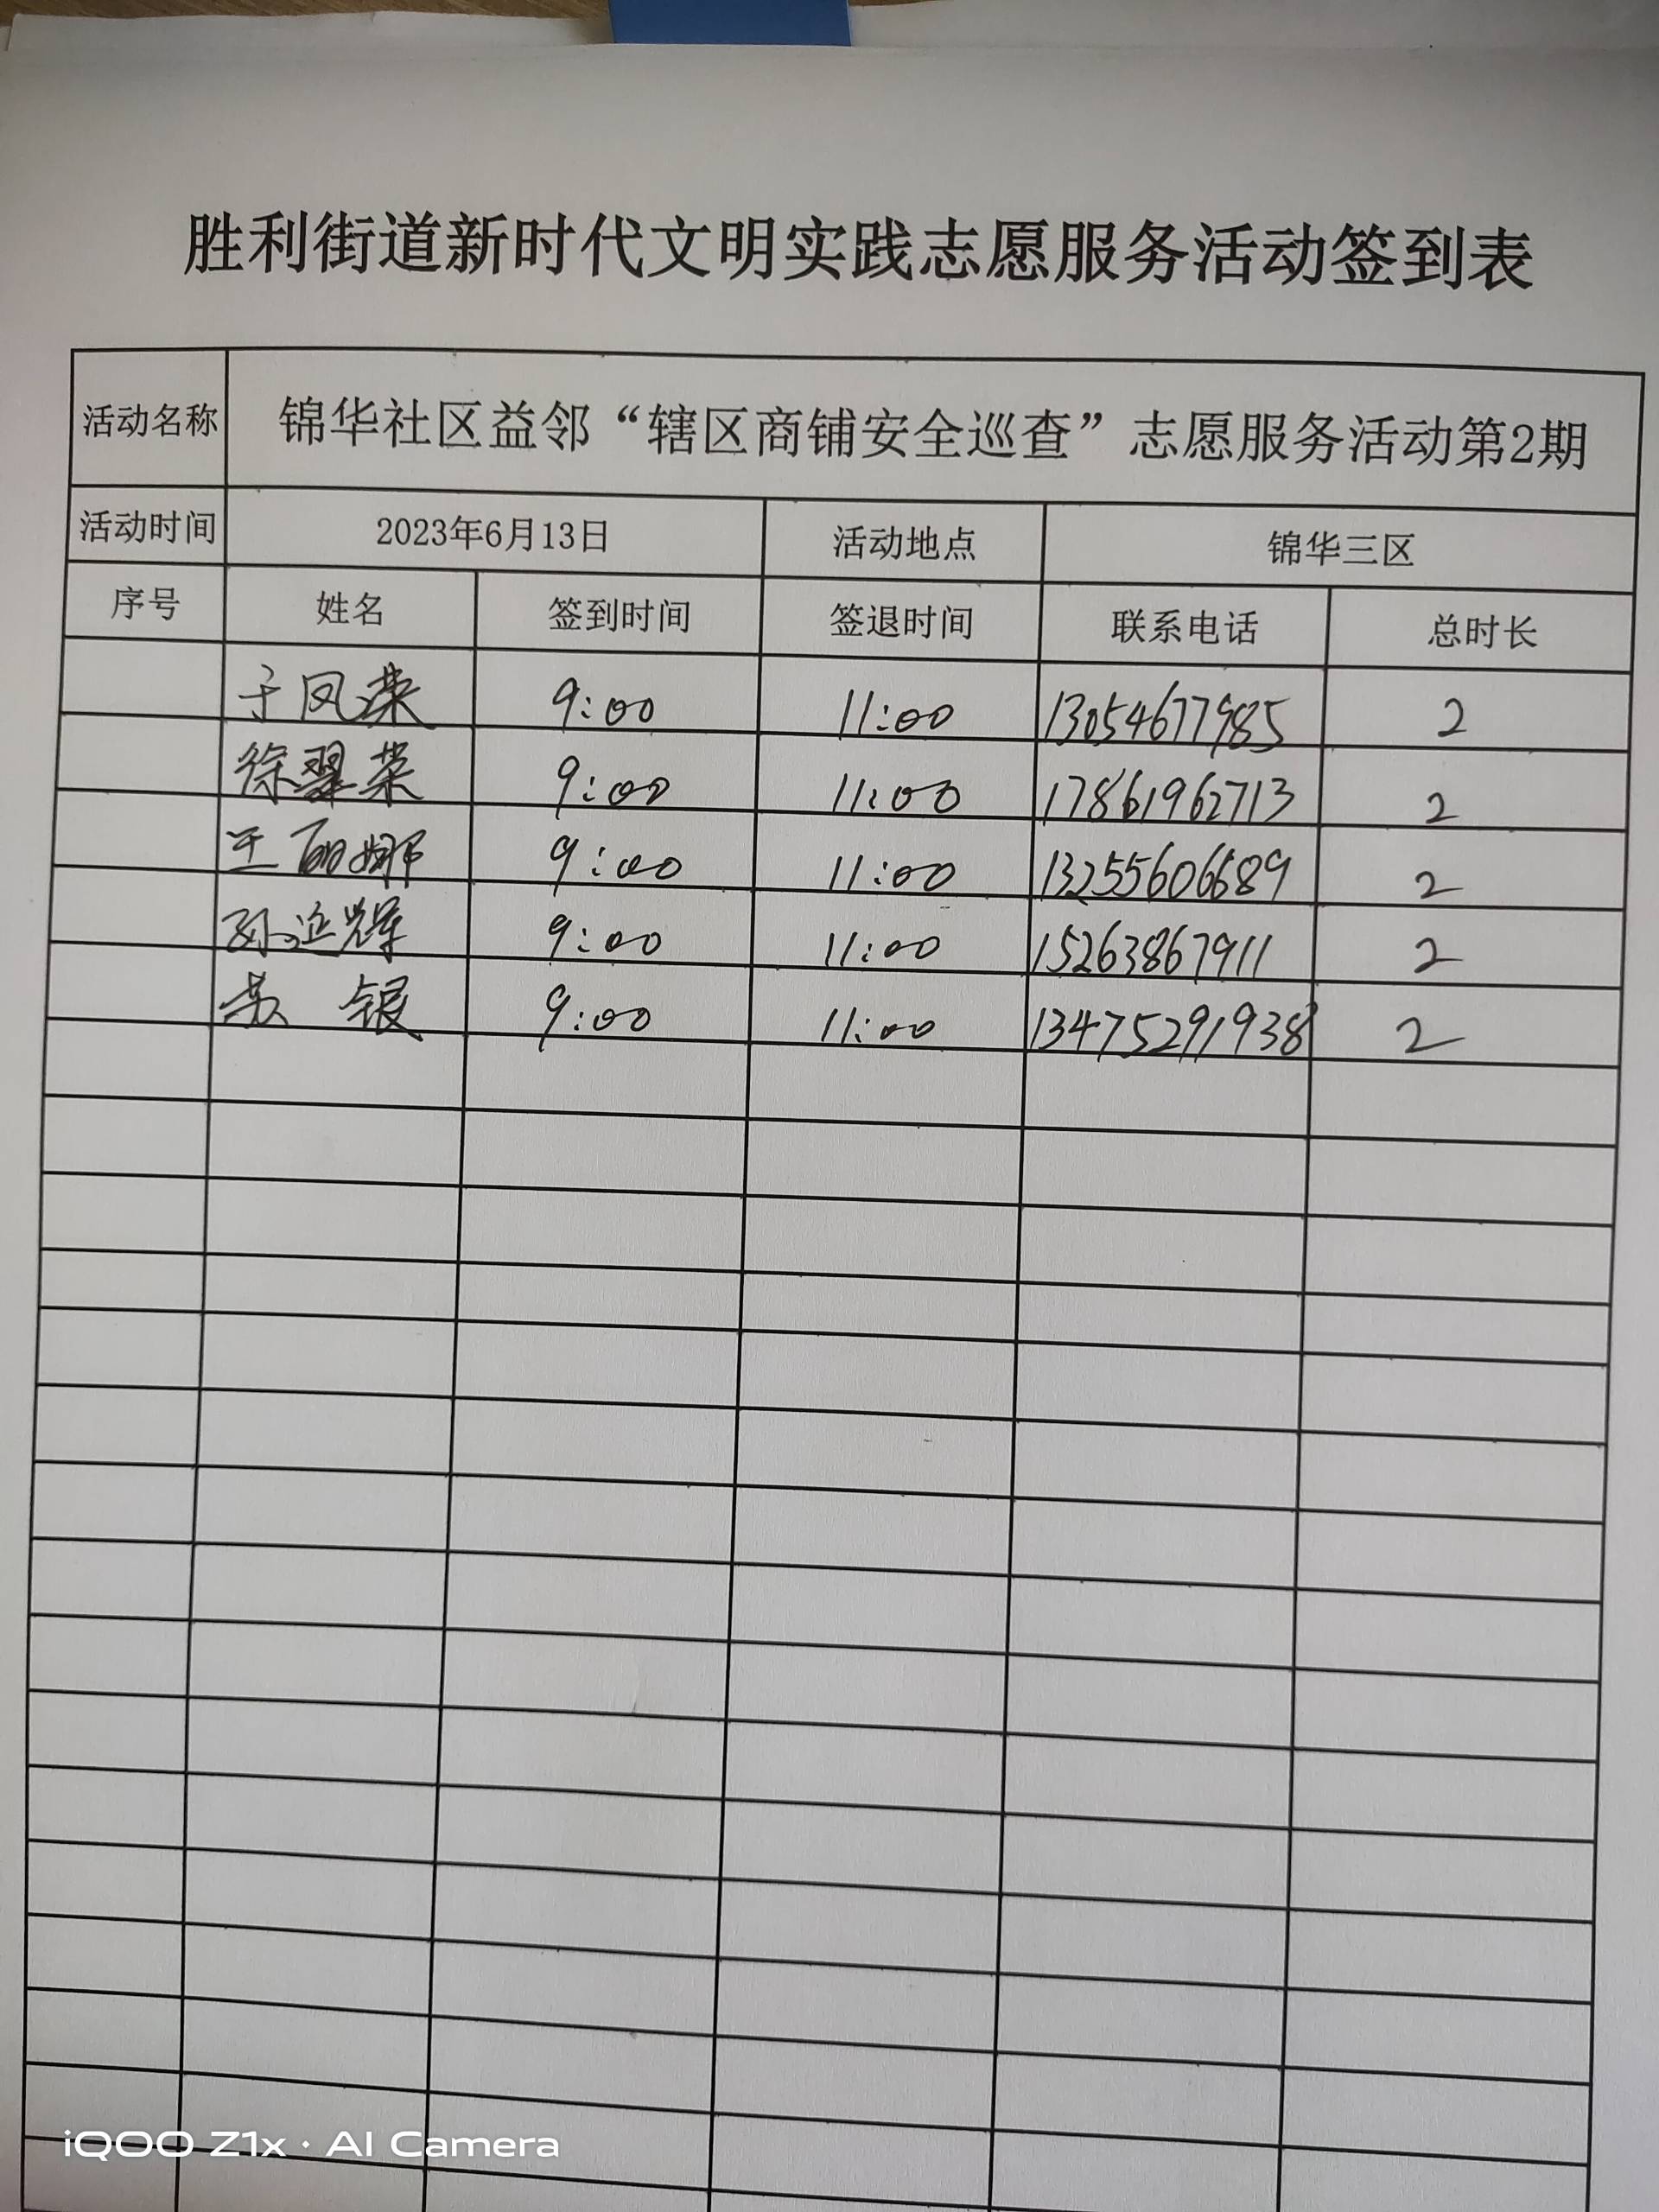 胜利街道新时代文明实践志愿服务活动签到表
活动名称 锦华社区益邻“辖区商铺安全巡查”志愿服务活动第2期
活动时间 2023年6月13日 活动地点 锦华三区
序号 姓名 签到时间 签退时间 联系电话 总时长
于凤荣 9:00 11:00 13054677985 2
徐翠荣 9:00 11:00 17861962713 2
王丽娜 9:00 11:00 13255606689 2
孙延辉 9:00 11:00 15263867911 2
苏银 9:00 11:00 13475291938 2
iQOO Z1x · AI Camera